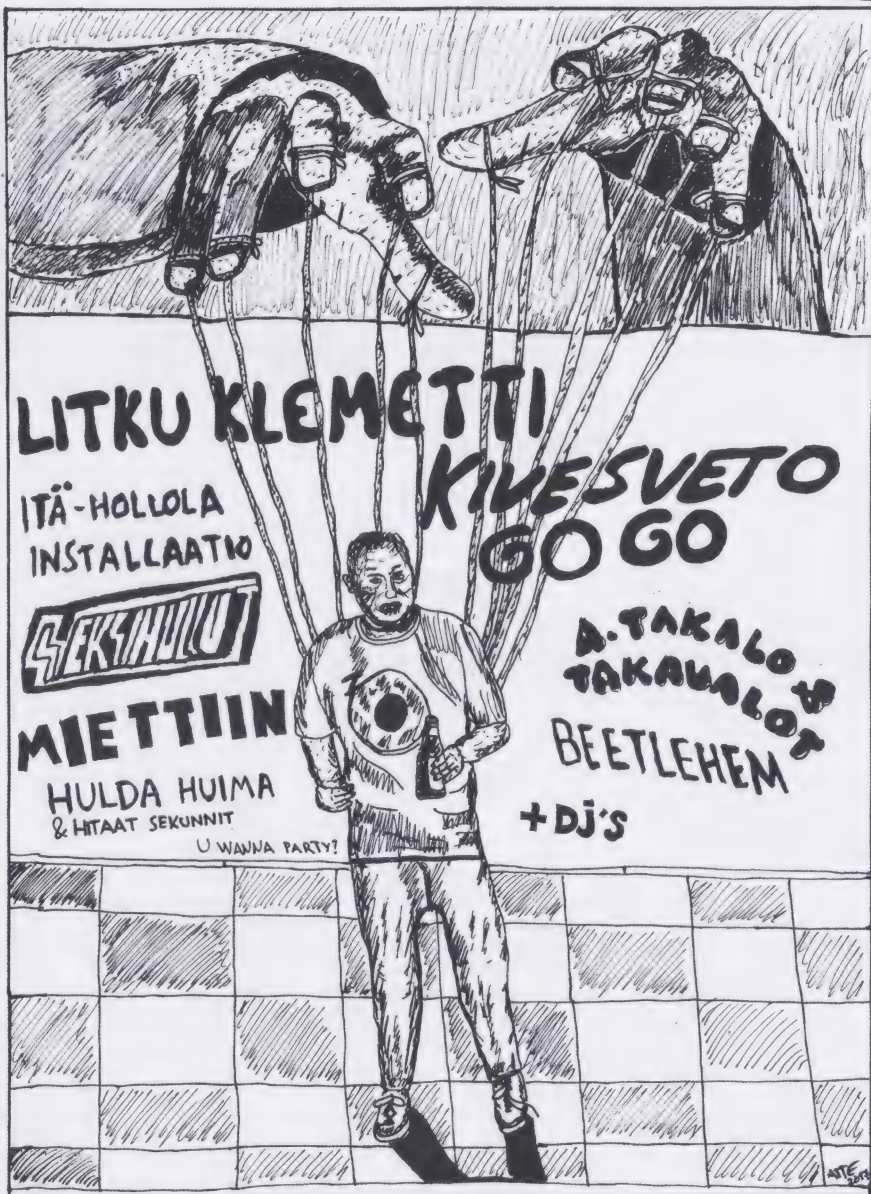 LITKU KLEMETTI
KIVESVETO
GO GO
ITÄ-HOLLOLA
INSTALLAATIO
SEKSIHULLUT
MIETTIIN
HULDA HUIMA
& HITAAT SEKUNNIT
U WANNA PARTY?
A. TAKALO &
TAKAVALOT
BEETLEHEM
+ DJ'S